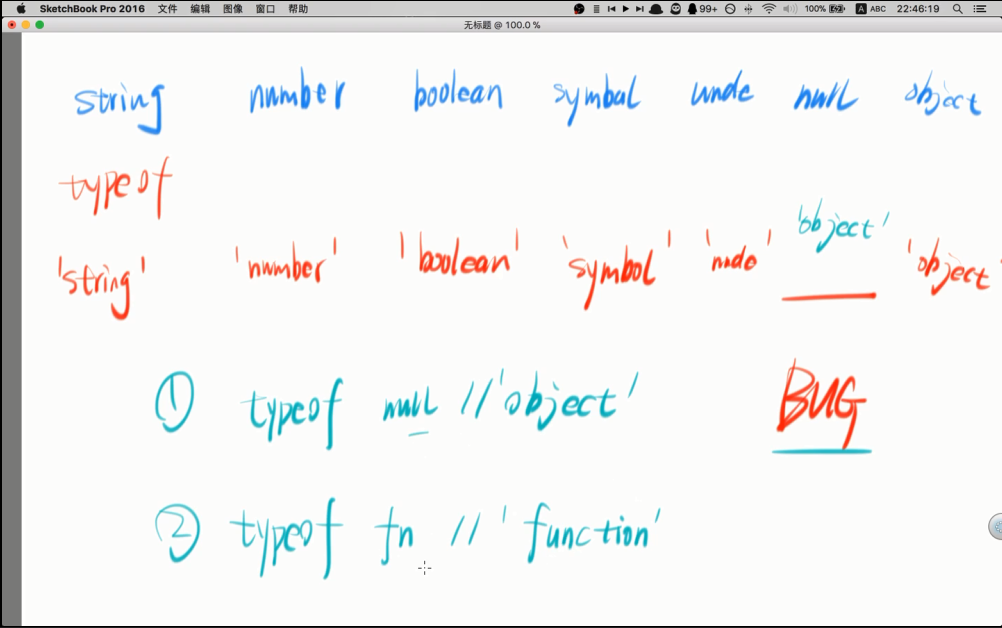 SketchBook Pro 2016 文件 编辑 图像 窗口 帮助 99+ 100% A ABC 22:46:19
无标题 @ 100.0 %
string number boolean symbal unde null object
typeof
'object'
'string' 'number' 'boolean' 'symbol' 'unde' 'object'
① typeof null // 'object' BUG
② typeof fn // 'function'